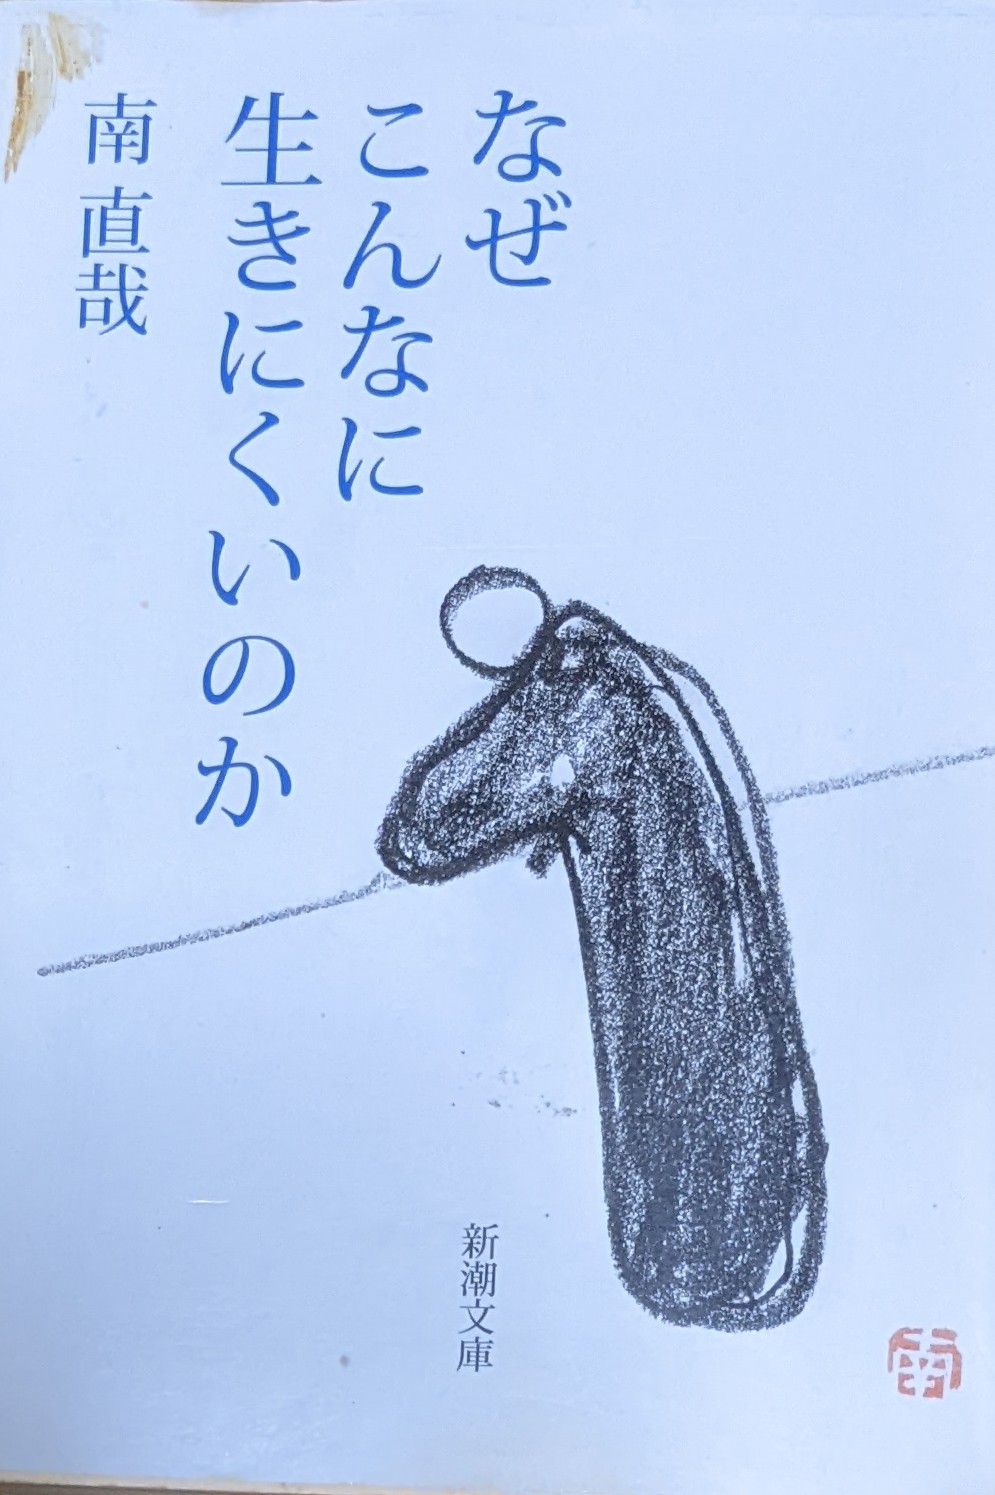 なぜ
こんなに
生きにくいのか
南 直哉
新潮文庫